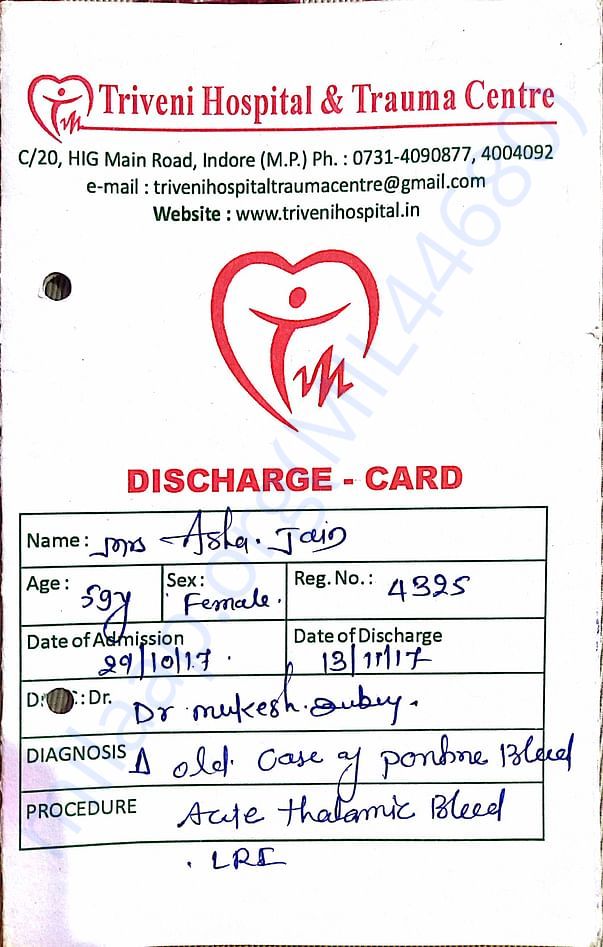 Triveni Hospital & Trauma Centre
C/20, HIG Main Road, Indore (M.P.) Ph. : 0731-4090877, 4004092
e-mail : trivenihospitaltraumacentre@gmail.com
Website : www.trivenihospital.in
DISCHARGE - CARD
Name : Mrs Asha. Jain
Age : 59y Sex : Female. Reg. No. : 4325
Date of Admission Date of Discharge
29/10/17. 13/11/17
Dr. Dr mukesh. Dubey.
DIAGNOSIS Δ old. Case of pontine Bleed
PROCEDURE Acute thalamic Bleed
. LRI
milaap.org(MIL44680)